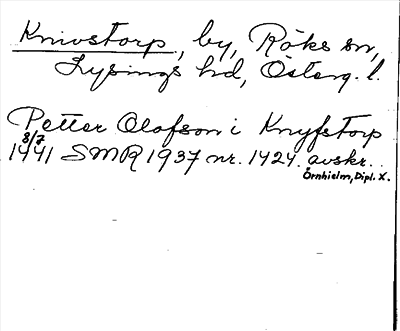 Knivstorp, by, Röks sn,
Lysings hd, Österg. l.
Petter Olofson i Knyfstorp
8/7
1441 SMR 1937 nr. 1424. avskr..
Örnhielm, Dipl. X.